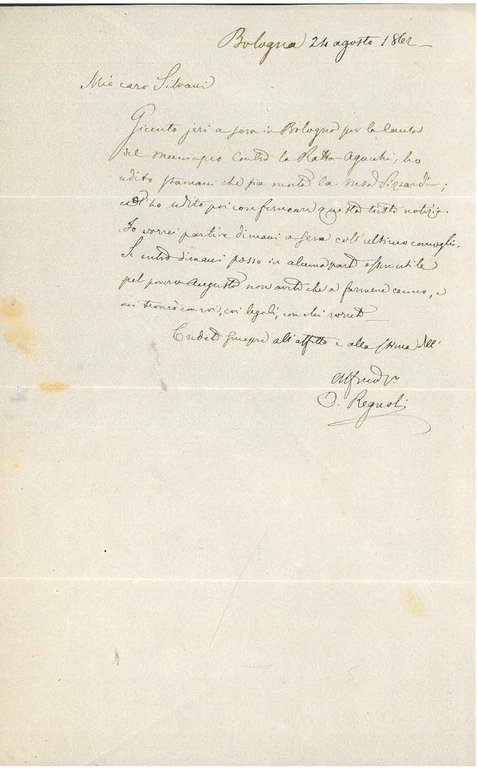 Bologna 24 agosto 1862
Mio caro Silvani
Giunto jeri a sera in Bologna per la causa
del municipio contro la Ratta-Agucchi, ho
udito stamani che è morta la Pizzardi;
ed ho udito poi confermare questa trista notizia.
Io vorrei partire dimani a sera coll'ultimo convoglio.
Se entro dimani posso in alcuna parte esser utile
pel povero Augusto non avete che a farmene cenno, e
mi troverò con voi, coi legali, con chi vorrete
Credete sempre all'affetto e alla stima dell'
O. Regnoli